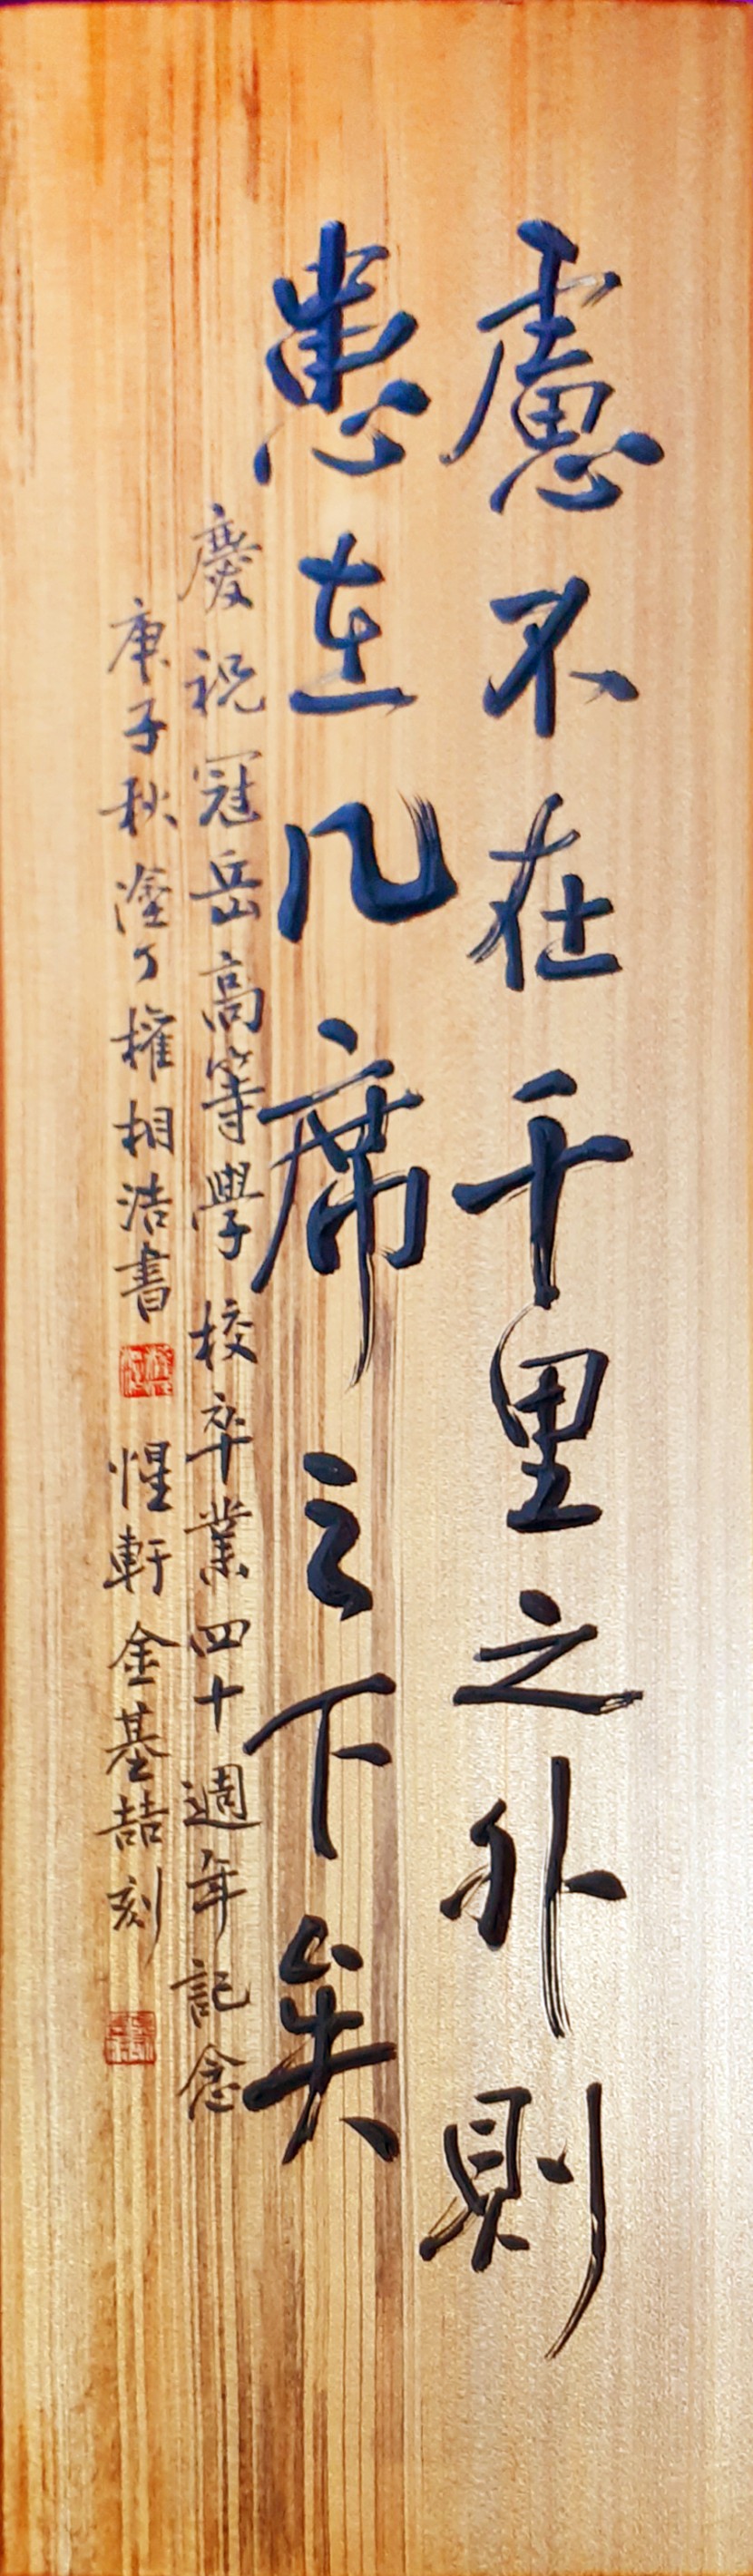 慮不在千里之外則
患在几席之下矣
慶祝冠岳高等學校卒業四十週年記念
庚子秋塗丁權相浩書 惺軒金基喆刻